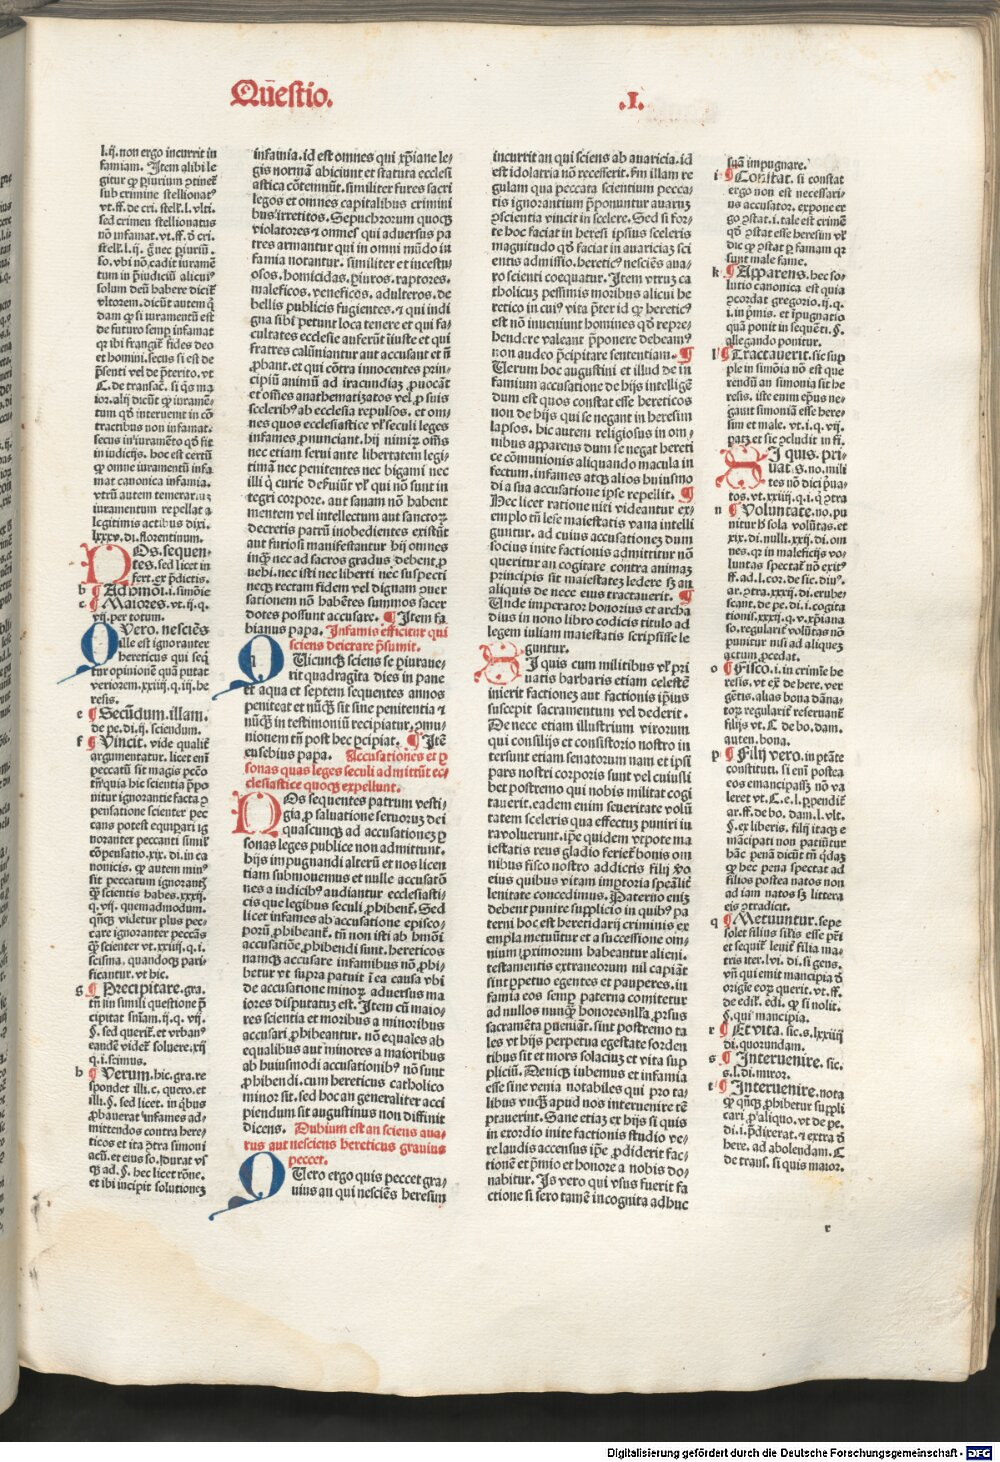 Qūestio.
.I.
l.ij. non ergo incurrit in
famiam. Item alibi le
gitur ꝙ ꝑiurium ꝯtinet̄
sub crimine stellionat⁹
vt.ff. de cri. stell. l. vlti.
sed crimen stellionatus
nō infamat. vt.ff. ð cri.
stell. l. ij. g̊ nec ꝑiuriū.
so. vbi nō cadit iuramē
tum in p̄iudiciū alicui⁹
solum deū habere dicit̄
vltorem. dicūt autem ꝙ
dam ꝙ si iuramentū est
de futuro semꝑ infamat
qꝛ ibi frangit̄ fides deo
et homini. secus si est de
p̄senti vel de p̄terito. vt
C. de transac̄. si q̄s ma
ior. alij dicūt ꝙ iuramē-
tum qð interuenit in cō
tractibus non infamat.
secus in iuramēto qð fit
in iudicijs. hoc est certū
ꝙ omne iuramentū infa
mat canonica infamia.
vtrū autem temerariuꝫ
iuramentum repellat a
legitimis actibus dixi.
lxxxv. di. florentinum.
NOs. sequen-
tes. sed licet in
fert. ex p̄dictis.
b ¶ Ad hmōi. i. simōie
c ¶ Maiores. vt. ij. q.
vij. per totum.
QVero. nesciēs
ille est ignoranter
hereticus qui seq̄
tur opinionē quā putat
veriorem. xxiij. q. iij. he
resis.
e ¶ Secūdum. illam.
de pe. di. ij. sciendum.
f ¶ Vincit. vide qualit̄
argumentatur. licet eni̅
peccatū sit magis pctō
tn̄ quia hic scientia p̄po
nitur ignorantie facta ꝯ
pensatione scienter pec
cans potest equipari ig
noranter peccanti simil̄
cōpensatio. xix. di. in ca
nonicis. ꝙ autem min⁹
sit peccatum ignorantꝭ
ꝙ̄ scientis habes. xxxij.
q. vij. quemadmodum.
qn̄qꝫ videtur plus pec-
care ignoranter peccās
ꝙ̄ scienter vt. xxiiij. q. i.
scisma. quandoqꝫ pari-
ficantur. vt hic.
g ¶ Precipitare. gra.
tn̄ in simili questione p̄
cipitat sniam. ij. q. vij.
§. sed querit̄. et vrban⁹
eandē videt̄ soluere. xij
q. i. scimus.
h ¶ Verum. hic. gra. re
spondet illi. c. quero. et
illi. §. sed licet. in qb̄us
ꝓbauerat infames ad-
mittendos contra here-
ticos et ita ꝯtra simoni
acū. et eius so. ꝺurat vs
qꝫ ad. §. hec licet rōne.
et ibi incipit solutioneꝫ
infamia. id est omnes qui xp̄iane le-
gis normā abiciunt et statuta ecclesi
astica cōtemnūt. similiter fures sacri
legos et omnes capitalibus crimini
bus irretitos. Sepuchrorum quoqꝫ
violatores ⁊ omnes qui aduersus pa
tres armantur qui in omni mūdo in
famia notantur. similiter et incestu-
osos. homicidas. ꝑiuros. raptores.
maleficos. veneficos. adulteros. de
bellis publicis fugientes. ⁊ qui indi
gna sibi petunt loca tenere et qui fa-
cultates ecclesie auferūt iniuste et qui
fratres calūniantur aut accusant et n̄
ꝓbant. et qui cōtra innocentes prin-
cipiū animū ad iracundiaꝫ ꝓuocāt
et oēs anathematizatos vel ꝓ suis
sceleribꝰ ab ecclesia repulsos. et om-
nes quos ecclesiastice vl̄ seculi leges
infames ꝓnunciant. hij nimiꝝ oēs
nec etiam serui ante libertatem legi-
timā nec penitentes nec bigami nec
illi q̄ curie deseruiūt vl̄ qui nō sunt in
tegri corpore. aut sanam nō habent
mentem vel intellectum aut sanctoꝝ
decretis patrū inobedientes existūt
aut furiosi manifestantur hij omnes
inqꝫ̄ nec ad sacros gradus ꝺebent ꝓ
uehi. nec isti nec liberti nec suspecti
necqꝫ rectam fidem vel dignam ꝯuer
sationem nō habētes summos sacer
dotes possunt accusare. ¶ Item fa
bianus papa. Infamis efficitur qui
sciens deierare p̄sumit.
QUicunqꝫ sciens se ꝑiuraue-
rit quadragīta dies in pane
et aqua et septem sequentes annos
peniteat et nūqꝫ̄ sit sine penitentia ⁊
nūqꝫ̄ in testimoniū recipiatur. ꝯmu-
nionem tn̄ post hec ꝑcipiat. ¶ Itē
eusebius papa. Accusationes et ꝑ
sonas quas leges seculi admittūt ec-
clesiastice quoqꝫ expellunt.
NOs sequentes patrum vesti-
gia ꝓ saluatione seruoꝝ dei
quascunqꝫ ad accusationeꝫ ꝑ
sonas leges publice non admittunt.
hijs impugnandi alterū et nos licen
tiam submouemus et nulle accusatō
nes a iudicib⁹ audiantur ecclesiasti-
cis que legibus seculi ꝓhibent̄. Sed
licet infames ab accusatione episco-
porū ꝓhibeant̄. tn̄ non isti ab hmōi
accusatiōe ꝓhibendi sunt. hereticos
namqꝫ accusare infamibus nō ꝓhi-
betur vt supra patuit i ea causa vbi
de accusatione minoꝝ aduersus ma
iores disputatuꝫ est. Item cū maio-
res scientia et moribus a minoribus
accusari ꝓhibeantur. nō equales ab
equalibus aut minores a maioribus
ab huiusmodi accusationib⁹ nō sunt
ꝓhibendi. cum hereticus catholico
minor sit. sed hoc an generaliter acci
piendum sit augustinus non diffinit
dicens. Dubium est an sciens aua-
rus aut nesciens hereticus grauius
peccet.
QUero ergo quis peccet gra-
uius an qui nesciēs heresim
incurrit an qui sciens ab auaricia. id
est idolatria nō recesserit. fm illam re
gulam qua peccata scientium pecca-
tis ignorantium p̄ponuntur auaruꝫ
ꝯscientia vincit in scelere. Sed si for-
te hoc faciat in heresi ipsius sceleris
magnitudo qð faciat in auariciaꝫ sci
entis admissio. heretic⁹ nesciēs aua-
ro scienti coequatur. Item vtruꝫ ca
tholicuꝫ pessimis moribus alicui he
retico in cui⁹ vita p̄ter id ꝙ heretic⁹
est nō inueniunt homines qð repre-
hendere valeant p̄ponere debeam⁹
non audeo p̄cipitare sententiam. ¶
Uerum hoc augustini et illud de in
famium accusatione de hijs intelligē
dum est quos constat esse hereticos
non de hijs qui se negant in heresim
lapsos. hic autem religiosus in om-
nibus apparens dum se negat hereti
ce cōmunionis aliquando macula in
fectum. infames atqꝫ alios huiusmo
di a sua accusatione ipse repellit. ¶
Hec licet ratione niti videantur ex-
emplo tn̄ lese maiestatis vana intelli
guntur. ad cuius accusationeꝫ dum
socius inite factionis admittitur nō
queritur an cogitare contra animaꝫ
principis sit maiestateꝫ ledere sꝫ an
aliquis de nece eius tractauerit. ¶
Unde imperator honorius et archa
dius in nono libro codicis titulo ad
legem iuliam maiestatis scripsisse le
guntur.
SI quis cum militibus vl̄ pri
uatis barbaris etiam celestē
inierit factioneꝫ aut factionis ip̄ius
susceperit sacramentum vel dederit.
De nece etiam illustrium virorum
qui consilijs et consistorio nostro in
tersunt etiam senatorum nam et ipsi
pars nostri corporis sunt vel cuiusli
bet postremo qui nobis militat cogi
tauerit. eadem enim seueritate volū
tatem sceleris qua effectuꝫ puniri iu
ra voluerunt. ip̄e quidem vtpote ma
iestatis reus gladio feriet̄ bonis om
nibus fisco nostro addictis filij vo
eius quibus vitam imꝑtoria spēalit̄
lenitate concedimus. Paterno eniꝫ
debent punire supplicio in quib⁹ pa
terni hoc est hereditarij criminis ex
empla metuūtur et a successione om-
nium ꝓrimorum habeantur alieni.
testamentis extraneorum nil capiāt
sint ꝑpetuo egentes et pauperes. in
famia eos semꝑ paterna comitetur
ad nullos nunqꝫ̄ honores nl̄la ꝓrsus
sacramēta ꝑueniāt. sint postremo ta
les vt hijs perpetua egestate sorden
tibus sit et mors solaciuꝫ et vita sup
pliciū. Deniqꝫ iubemus et infamia
esse sine venia notabiles qui pro ta-
libus vnqꝫ̄ apud nos interuenire tē
ptauerint. Sane etiaꝫ ex hijs si quis
in exordio inite factionis studio ve-
re laudis accensus ip̄e ꝓdiderit fac-
tionē et p̄mio et honore a nobis do-
nabitur. Is vero qui vsus fuerit fa
ctione si sero tamē incognita adhuc
suā impugnare.
i ¶ Constat. si constat
ergo non est necessari-
us accusator. expone er
go ꝯstat. i. tale est crimē
qð ꝯstat esse heresim vl̄
dic ꝙ ꝯstat ꝑ famam qꝛ
sunt male fame.
k ¶ Apparens. hec so-
lutio canonica est quia
ꝯcordat gregorio. ij. q.
i. in p̄mis. et ip̄ugnatio
quā ponit in sequēti. §.
allegando ponitur.
l ¶ Tractauerit. sic sup
ple in simōia nō est que
rendū an simonia sit he
resis. iste enim ep̄us ne-
gauit simoniā esse here-
sim et male. vt. i. q. vij.
patꝫ et sic ꝯcludit in fi.
SI quis. pri-
uat. s. no. mili
tes nō dici pua-
tos. vt. xxiij. q. i. ꝙ ꝯtra
n ¶ Voluntate. no. pu
nitur h̄ sola volūtas. et
xix. di. nulli. xxij. di. om
nes. qꝛ in maleficijs vo-
luntas spectat̄ nō exit⁹
ff. ad. l. cor. de sic. diu⁹.
ar. ꝯtra. xxxij. di. erube
scant. de pe. di. i. cogita
tionis. xxxij. q. v. xp̄iana
so. regularit̄ volūtas nō
punitur nisi ad aliqueꝫ
actum ꝓcedat.
o ¶ Fisco. i. in crimīe he
resis. vt ex̄ de here. ver
gētis. alias bona dāna-
toꝝ regularit̄ reseruant̄
filijs vt. C de bo. dam.
auten. bona.
p ¶ Filij vero. in ptāte
constituti. si eni̅ postea
eos emancipasꝫ nō va
leret vt. C. e. l. ꝑpendit̄
ar. ff. de bo. dam. l. vlt.
§. ex liberis. filij itaqꝫ e
mācipati non patiūtur
hāc penā dicūt tn̄ q̄daꝫ
ꝙ hec pena spectat ad
filios postea natos non
ad iam natos sꝫ littera
eis ꝯtradicit.
q ¶ Metuuntur. sepe
solet filius sil̄is esse pr̄i
et sequit̄ leuit̄ filia ma-
tris iter. lvi. di. si gens.
vn̄ qui emit mancipia ð
origīe eoꝝ querit. vt. ff.
de edil̄. edi. ꝙ si nolit.
§. qui mancipia.
r ¶ Et vita. sic. s. lxxiiij
di. quorundam.
s ¶ Interuenire. sic.
s. l. di. miror.
t ¶ Interuenire. nota
ꝙ qn̄qꝫ ꝓhibetur suppli
cari ꝓ aliquo. vt de pe.
di. i. p̄dixerat. ⁊ extra ð
here. ad abolendam. C
de trans. si quis maior.
r
Digitalisierung gefördert durch die Deutsche Forschungsgemeinschaft - DFG